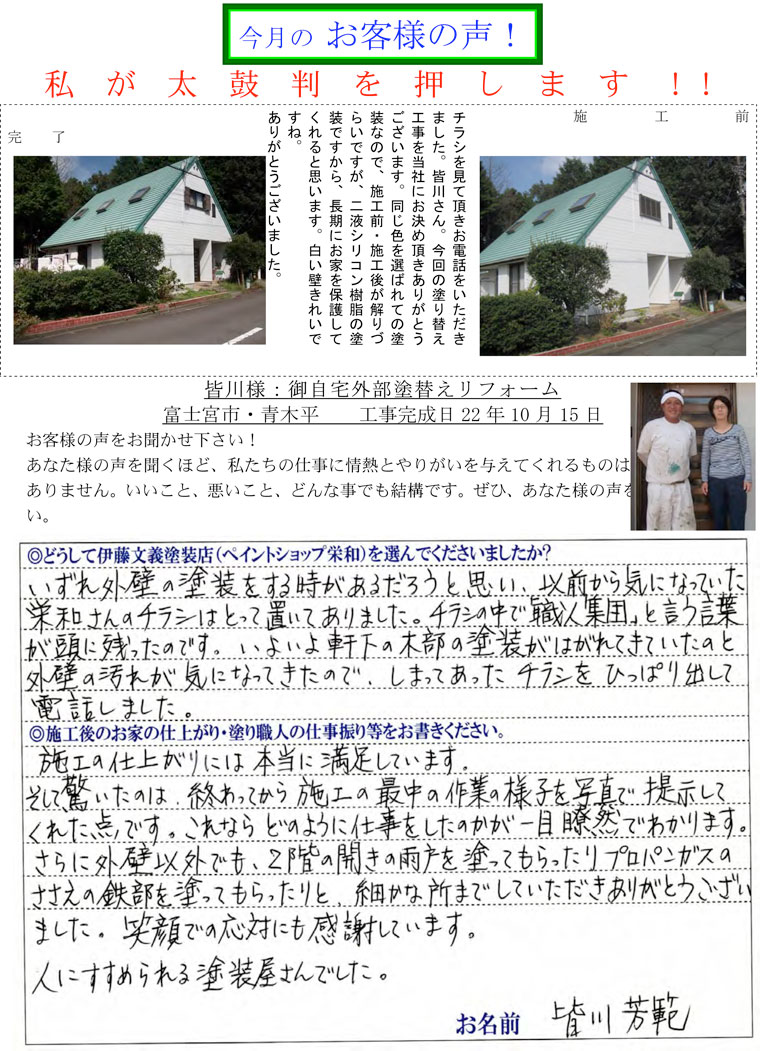 今月の お客様の声！
私が太鼓判を押します!!
施工前
完了
チラシを見て頂きお電話をいただき
ました。皆川さん。今回の塗り替え
工事を当社にお決め頂きありがとう
ございます。同じ色を選ばれての塗
装なので、施工前・施工後が解りづ
らいですが、二液シリコン樹脂の塗
装ですから、長期にお家を保護して
くれると思います。白い壁きれいで
すね。
ありがとうございました。
皆川様：御自宅外部塗替えリフォーム
富士宮市・青木平　　工事完成日 22 年 10 月 15 日
お客様の声をお聞かせ下さい！
あなた様の声を聞くほど、私たちの仕事に情熱とやりがいを与えてくれるものは
ありません。いいこと、悪いこと、どんな事でも結構です。ぜひ、あなた様の声を
い。
◎どうして伊藤文義塗装店（ペイントショップ栄和）を選んでくださいましたか？
いずれ外壁の塗装をする時があるだろうと思い、以前から気になっていた
栄和さんのチラシはとって置いてありました。チラシの中で「職人集団」と言う言葉
が頭に残ったのです。いよいよ軒下の木部の塗装がはがれてきていたのと
外壁の汚れが気になってきたので、しまってあったチラシをひっぱり出して
電話しました。
◎施工後のお家の仕上がり・塗り職人の仕事振り等をお書きください。
施工の仕上がりには本当に満足しています。
そして驚いたのは、終わってから施工の最中の作業の様子を写真で提示して
くれた点です。これならどのように仕事をしたのかが一目瞭然でわかります。
さらに外壁以外でも、2階の開きの雨戸を塗ってもらったりプロパンガスの
ささえの鉄部を塗ってもらったりと、細かな所までしていただきありがとうござい
ました。笑顔での応対にも感謝しています。
人にすすめられる塗装屋さんでした。
お名前　皆川芳範